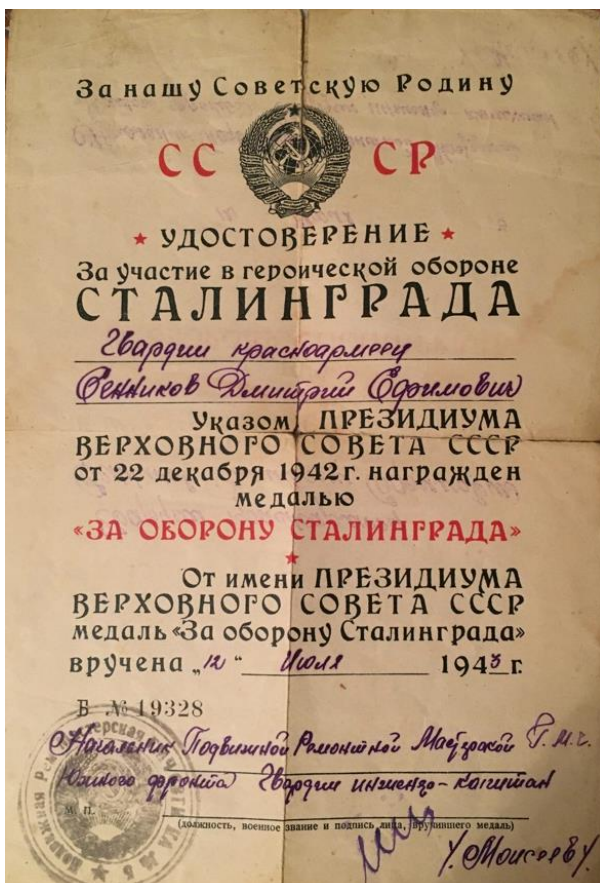 За нашу Советскую Родину
СССР
★ УДОСТОВЕРЕНИЕ ★
За участие в героической обороне
СТАЛИНГРАДА
Гвардии красноармеец
Дмитрий Ефимович
Указом ПРЕЗИДИУМА
ВЕРХОВНОГО СОВЕТА СССР
от 22 декабря 1942 г. награжден
медалью
«ЗА ОБОРОНУ СТАЛИНГРАДА»
★
От имени ПРЕЗИДИУМА
ВЕРХОВНОГО СОВЕТА СССР
медаль «За оборону Сталинграда»
вручена „12“ Июля 1943 г.
Б № 19328
Начальник Подвижной Ремонтной Мастерской
Южного фронта Гвардии инженер-капитан
М. П.
(должность, военное звание и подпись лица, вручившего медаль)